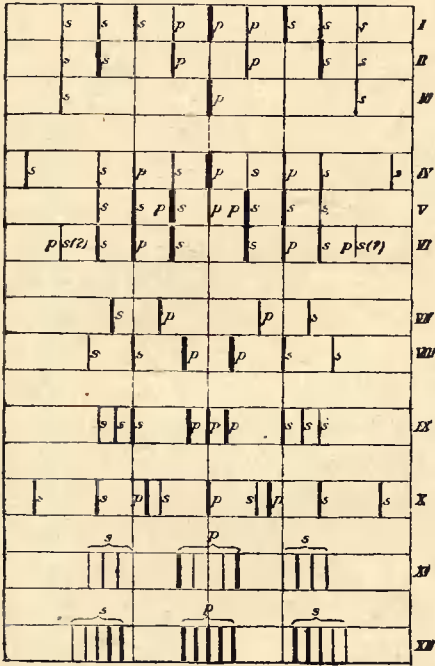 s s s p p p s s s I
s s p p s s II
s p s III
s s p s p s p s s IV
s s p s p p s s s V
p s(?) s p s s p s p s(?) VI
s p p s VII
s s p p s s VIII
s s s p p p s s s IX
s s p s p s p s s X
s p s
XI
s p s
XII